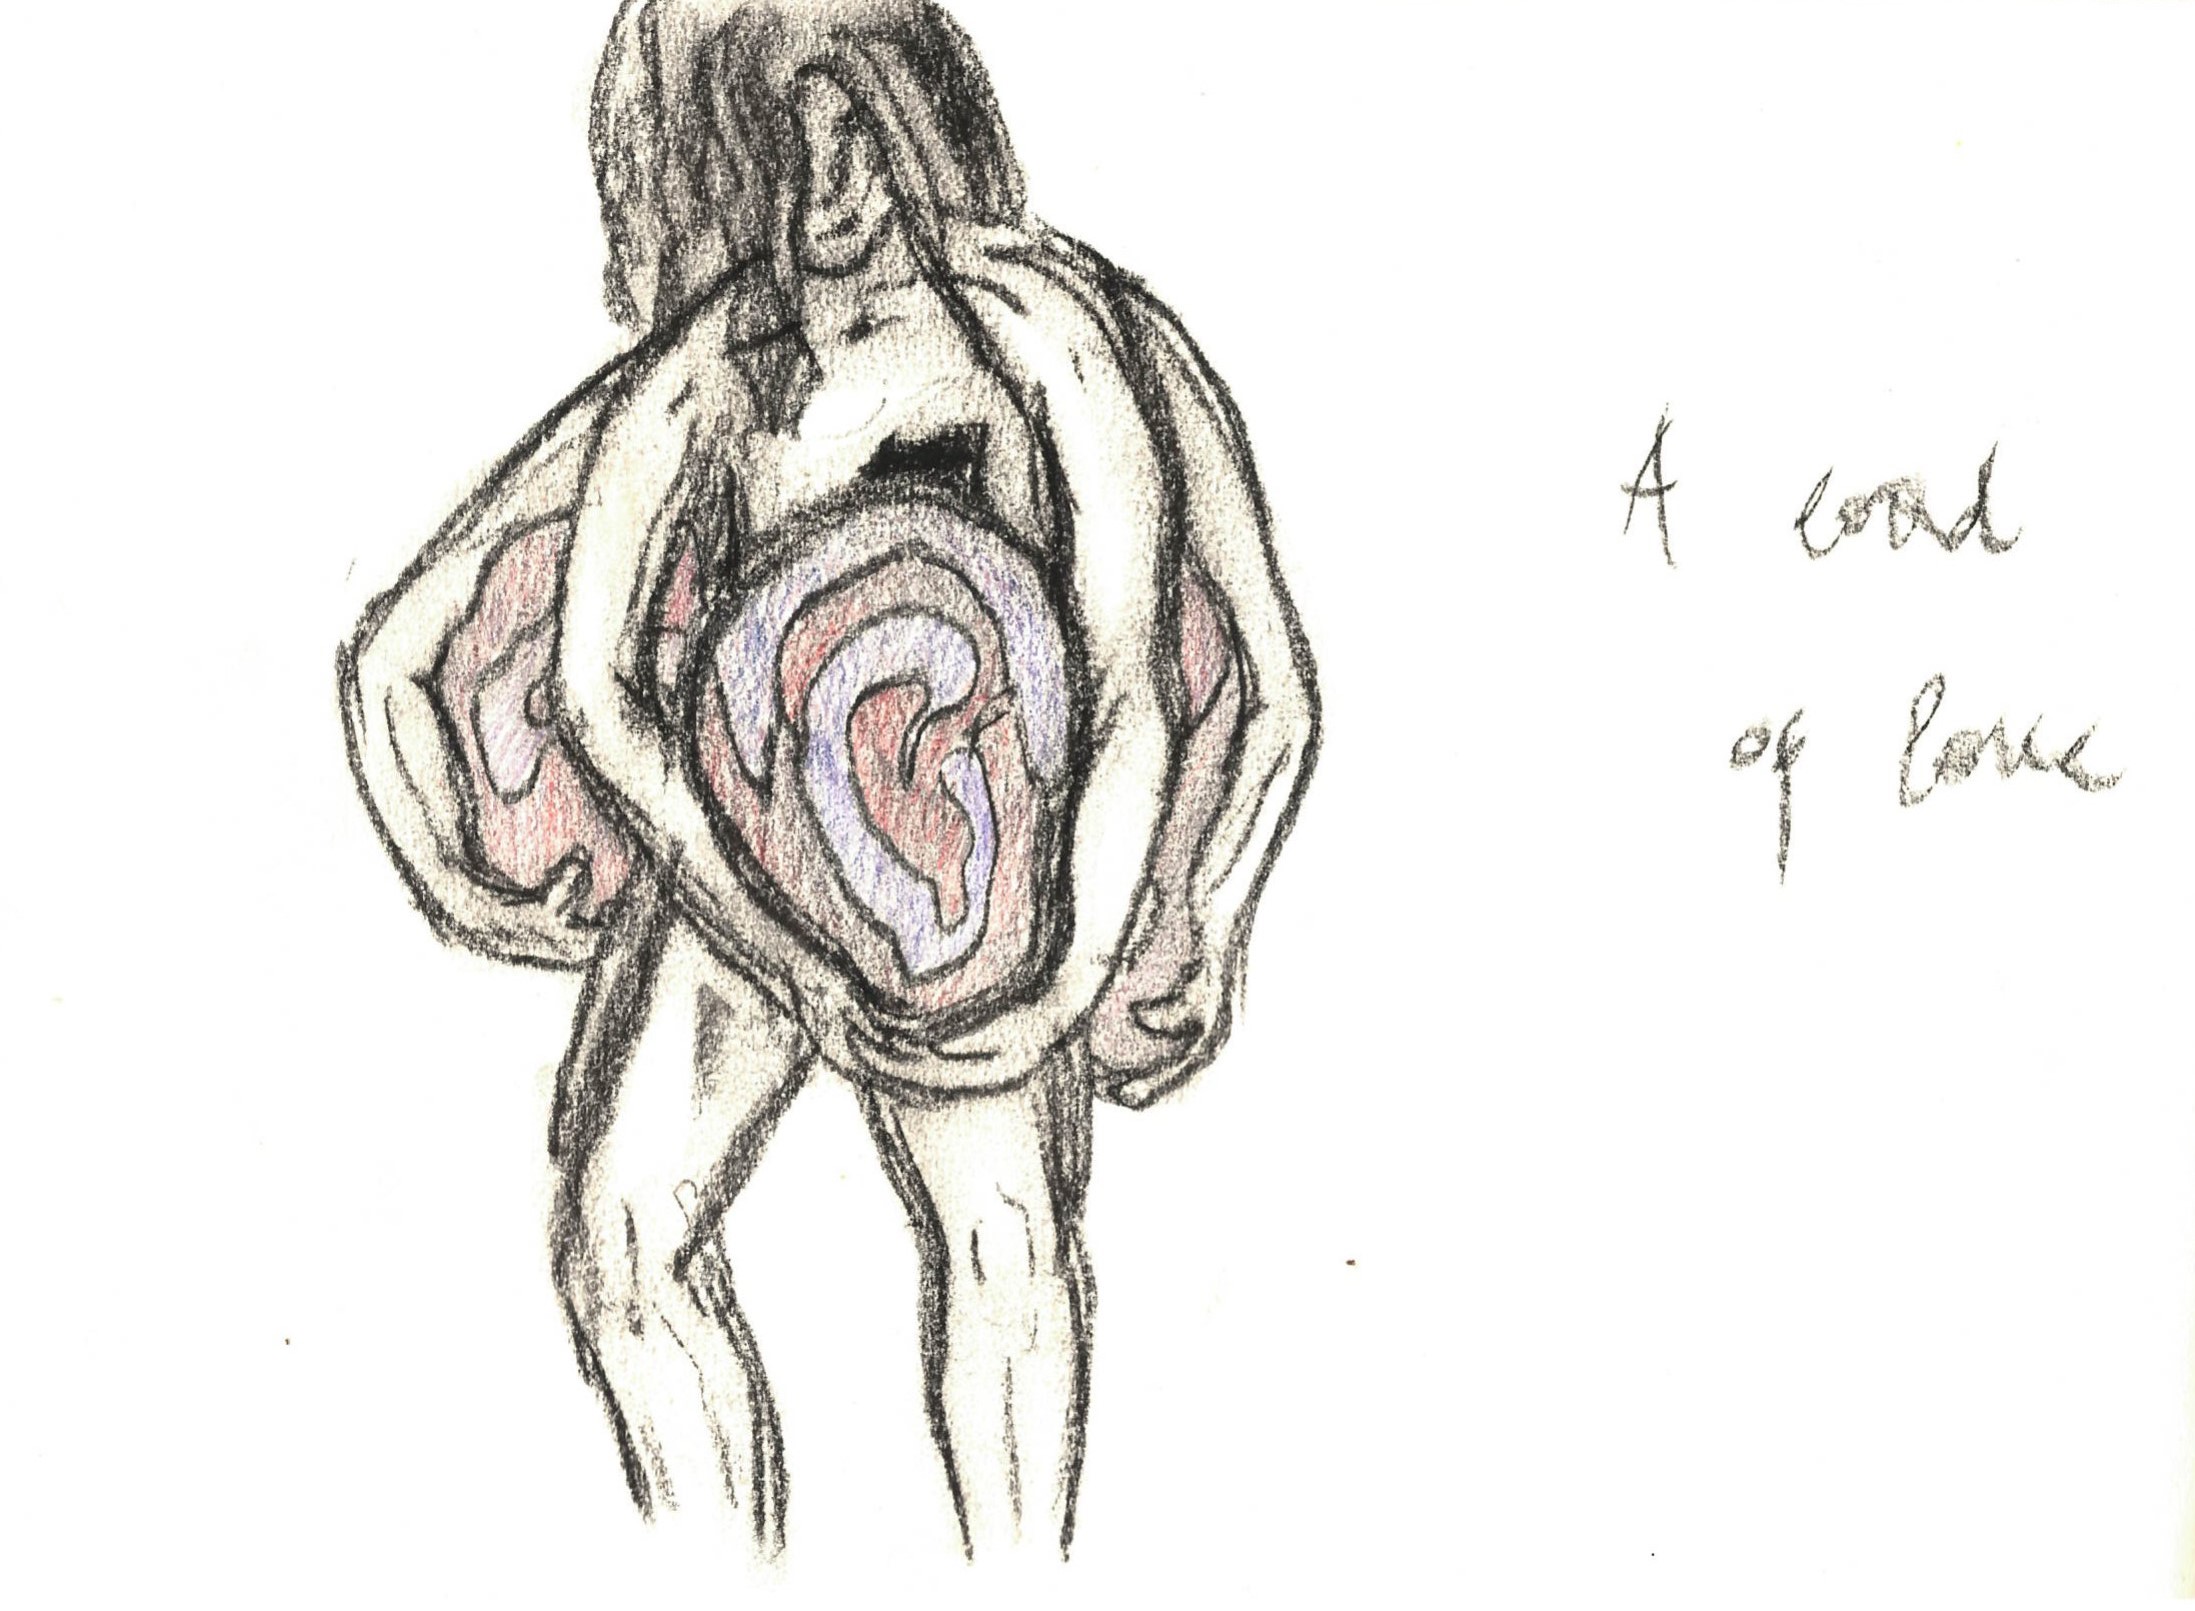 A load
of love